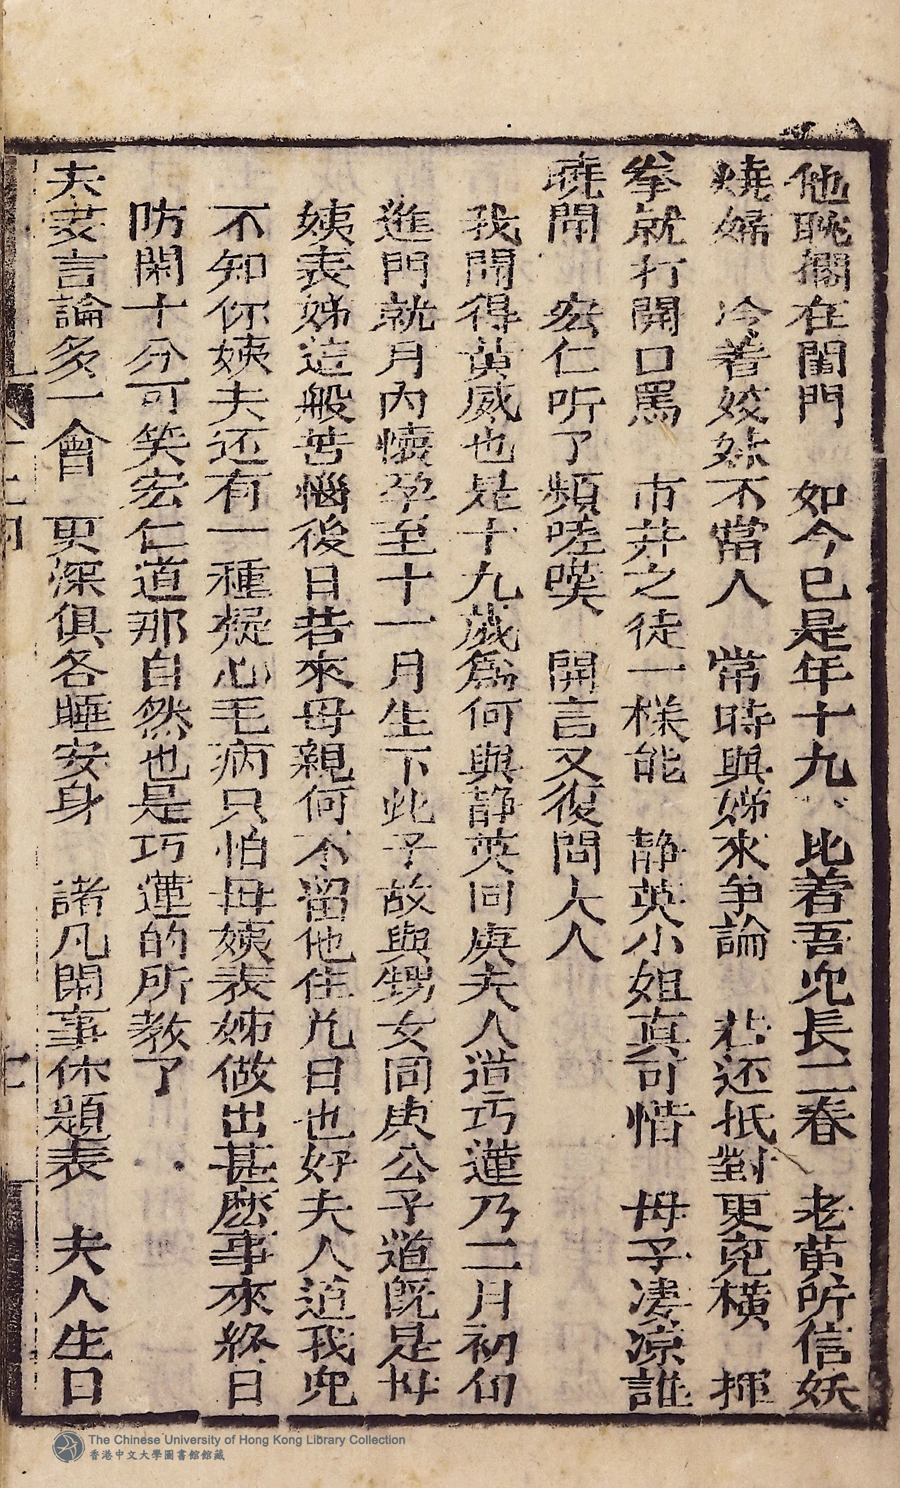 他耽擱在閨門　如今已是年十九　比着吾兒長二春　老黄所信妖
嬈婦　冷着姣妹不當人　常時與娣來争論　若还抵對更兇横　揮
拳就打開口罵　市井之徒一様能　静英小姐真可惜　母子凄凉誰
曉聞　宏仁听了頻嗟嘆　開言又復問夫人
我聞得黄威也是十九歲爲何與静英同庚夫人道巧蓮乃二月初旬
進門就月内懷孕至十一月生下此子故與甥女同庚公子道既是母
姨表娣這般苦惱後日若來母親何不留他住几日也好夫人道我兒
不知你姨夫还有一種疑心毛病只怕母姨表姊做出甚麽事來終日
防閑十分可笑宏仁道那自然也是巧蓮的所教了
夫妾言論多一會　更深俱各睡安身　諸凡閑事休題表　夫人生日
The Chinese University of Hong Kong Library Collection
香港中文大學圖書館館藏